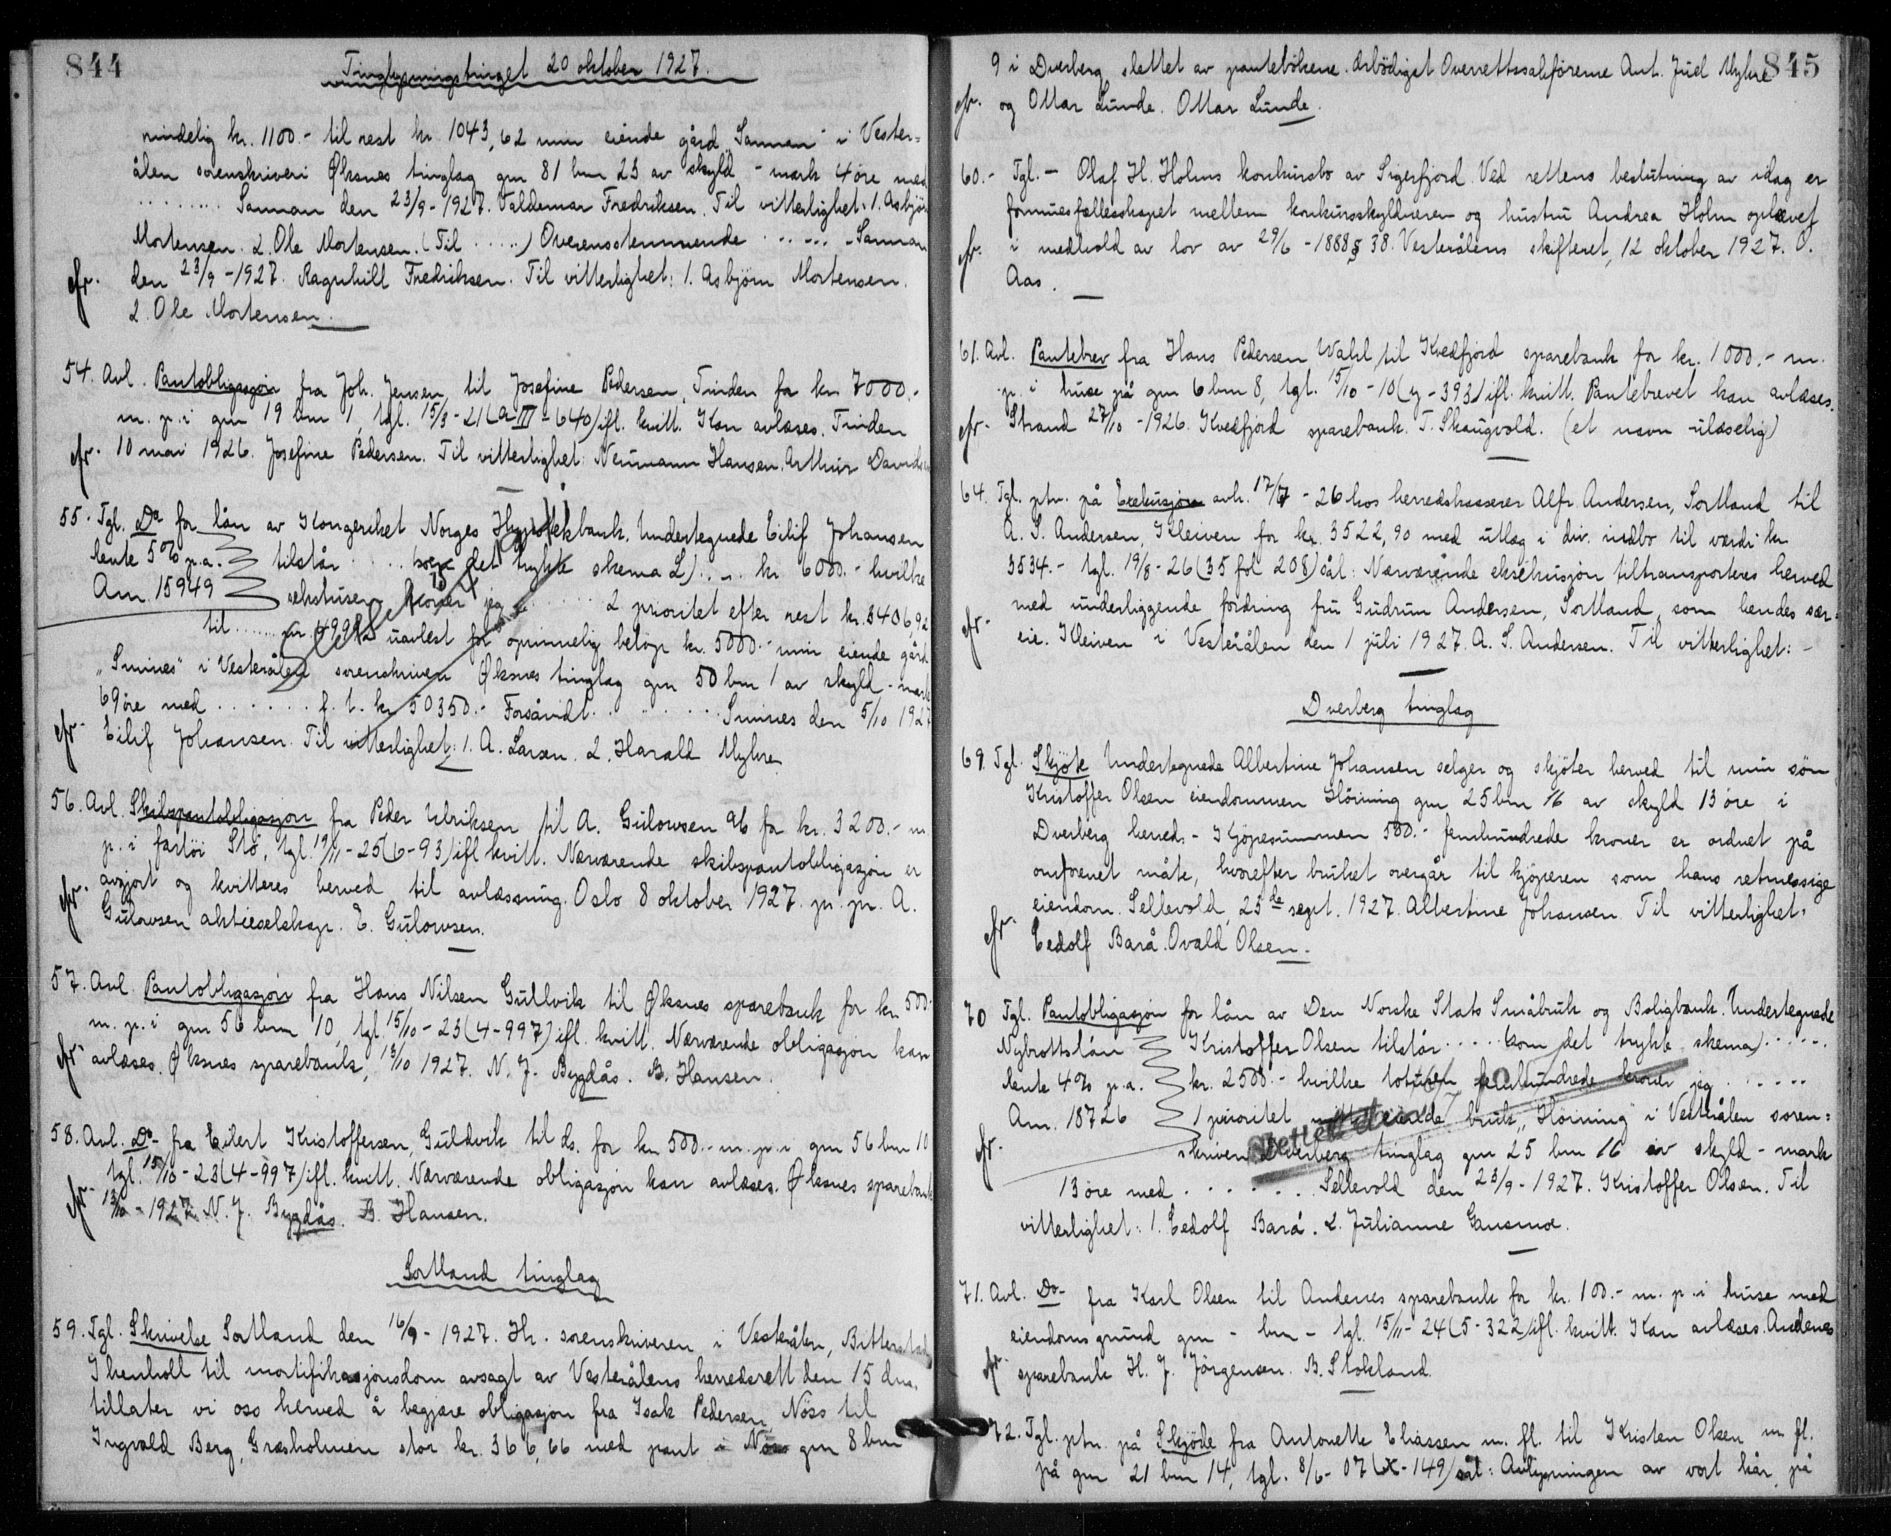 844
Tinglysningstinget 20 oktober 1927.
rindelig kr. 1100.- til rest kr 1043,62 min eiende gård „Sannan" i Vester=
ålen sorenskriveri Øksnes tinglag gnr 81 bnr 23 av skyld - mark 4 øre med
......... Sannan den 23/9-1927. Valdemar Fredriksen. Til vitterlighet: 1. Asbjörn
Mortensen. 2. Ole Mortensen. (Til .....) Overensstemmende ..... Sannan
den 23/9-1927. Ragnhill Fredriksen. Til vitterlighet: 1. Asbjörn Mortensen.
2. Ole Mortensen.
54. Avl. Pantobligasjon fra Joh. Jensen til Josefine Pedersen, Tinden for kr 7000.-
m. p. i gnr 19 bnr 1, tgl. 15/3-21 (a III-640) ifl. kvitt. Kan avlæses. Tinden
10 mai 1926. Josefine Pedersen. Til vitterlighet: Neumann Hansen. Arthur Davidsen
55. Tgl. Do for lån av Kongeriket Norges Hypotekbank. Undertegnede Eilif Johansen
rente 5% p.a. tilstår .... (som det trykte skema L) .... kr. 6000.- hvilke
Am. 15949 sekstusen kroner jeg ....... 2 prioritet efter rest kr. 3406,92
til ....... uavlest for oprinnelig beløp kr. 5000.- min eiende gård
„Smines" i Vesterålen sorenskriveri Øksnes tinglag gnr 50 bnr 1 av skyld - mark
69 øre med ....... f. t. kr 50350.- Forsåvidt ....... Smines den 5/10 1927
Eilif Johansen. Til vitterlighet: 1. A. Larsen. 2. Harald Myhre.
56. Avl. Skibspantobligasjon fra Peder Ulriksen til A. Gulowsen A/S for kr. 3200.- m.
p. i fartöi Stö, tgl. 19/11-25 (6-93) ifl kvitt. Nærværende skibspantobligasjon er
avgjort og kvitteres herved til avlæssning. Oslo 8 oktober 1927. pr. pr. A.
Gulowsen aktieselskap. E. Gulowsen.
57. Avl. Pantobligasjon fra Hans Nilsen Gullvik til Øksnes sparebank for kr. 500.-
m. p. i gnr 56 bnr 10, tgl. 15/10-23 (4-997) ifl. kvitt. Nærværende obligasjon kan
avlæses. Øksnes sparebank, 13/10 1927. N. J. Bygdås. B. Hansen.
58. Avl. Do- fra Eilert Kristoffersen, Guldvik til ds. for kr 500.- m. p. i gnr 56 bnr 10
tgl. 15/10-23 (4-997) ifl. kvitt. Nærværende obligasjon kan avlæses. Øksnes sparebank
13/10-1927 N. J. Bygdås. B. Hansen.
Sortland tinglag
59. Tgl. Skrivelse Sortland den 16/9-1927. Hr. sorenskriveren i Vesterålen, Bitterstad
I henholl til mortifikasjonsdom avsagt av Vesterålens herredsrett den 15 dns.
tillater vi oss herved å begjære obligasjon fra Isak Pedersen Nöss til
Ingvald Berg, Græsholmen stor kr. 366,66 med pant i Nöss gnr 8 bnr
845
9 i Dverberg slettet av pantebökene. Ærbödigst Overrettssakförerne Ant. Juel Myhre
og Ottar Lunde. Ottar Lunde.
60.- Tgl. - Olaf H. Holms konkursbo av Sigerfjord. Ved rettens beslutning av idag er
formuesfællesskapet mellem konkursskyldneren og hustru Andrea Holm ophævet
i medhold av lov av 29/6-1888 § 38. Vesterålens skifteret, 12 oktober 1927. O.
Aas.
61. Avl. Pantebrev fra Hans Pedersen Wahl til Kvedfjord sparebank for kr. 1000.- m.
p. i huse på gnr 6 bnr 8, tgl. 15/10-10 (y-393) ifl. kvitt. Pantebrevet kan avlæses.
Strand 27/10-1926. Kvedfjord sparebank. T. Skaugvold. (et navn ulæselig)
64. Tgl. ptr. på Exekusjon avh. 17/7-26 hos herredskasserer Alfr. Andersen, Sortland til
A. S. Andersen, Kleiven for kr. 3522,90 med utlæg i div. indbo til værdi kr.
3534.- tgl. 19/8-26 (35 fol 208) sål: Nærværende eksekusjon tiltransporteres herved
med underliggende fordring fru Gudrun Andersen, Sortland, som hendes sær=
eie. Kleiven i Vesterålen den 1 juli 1927. A. S. Andersen. Til vitterlighet: -
Dverberg tinglag
69. Tgl. Skjöte Undertegnede Albertine Johansen selger og skjöter herved til min sön
Kristoffer Olsen eiendommen Horning gnr 25 bnr 16 av skyld 13 øre i
Dverberg herred. - Kjöpesummen 500.- femhundrede kroner er ordnet på
omforenet måte, hvorefter bruket overgår til kjöperen som hans retmessige
eiendom. Sellevold, 23de sept. 1927. Albertine Johansen. Til vitterlighet:
Eedolf Barå. Ovald Olsen.
70 Tgl. Pantobligasjon for lån av Den Norske Stats Småbruk og Boligbank. Undertegnede
Nybrottslån Kristoffer Olsen tilstår ..... (som det trykte skema) .....
rente 4% p.a. kr. 2500.- hvilke totusen femhundrede kroner jeg ......
Am. 18726 1 prioritet mitt eiende bruk „Horning" i Vesterålen soren=
skriveri Dverberg tinglag gnr 25 bnr 16 av skyld - mark
13 øre med ....... Sellevold den 23/9-1927. Kristoffer Olsen. Til
vitterlighet: 1. Eedolf Barå. 2. Julianne
71. Avl. Do- fra Karl Olsen til Andenes sparebank for kr. 100.- m. p. i huse med
eiendomsgrund gnr - bnr - tgl. 15/11-24 (5-322) ifl. kvitt. Kan avlæses. Andenes
sparebank H. J. Jörgensen. B. Stokland.
72. Tgl. ptr. på Skjöde fra Antonette Eliassen m. fl. til Kristen Olsen m fl.
på gnr 21 bnr 14, tgl. 8/6-07 (X-149) sål: Avlysningen av vort kår på